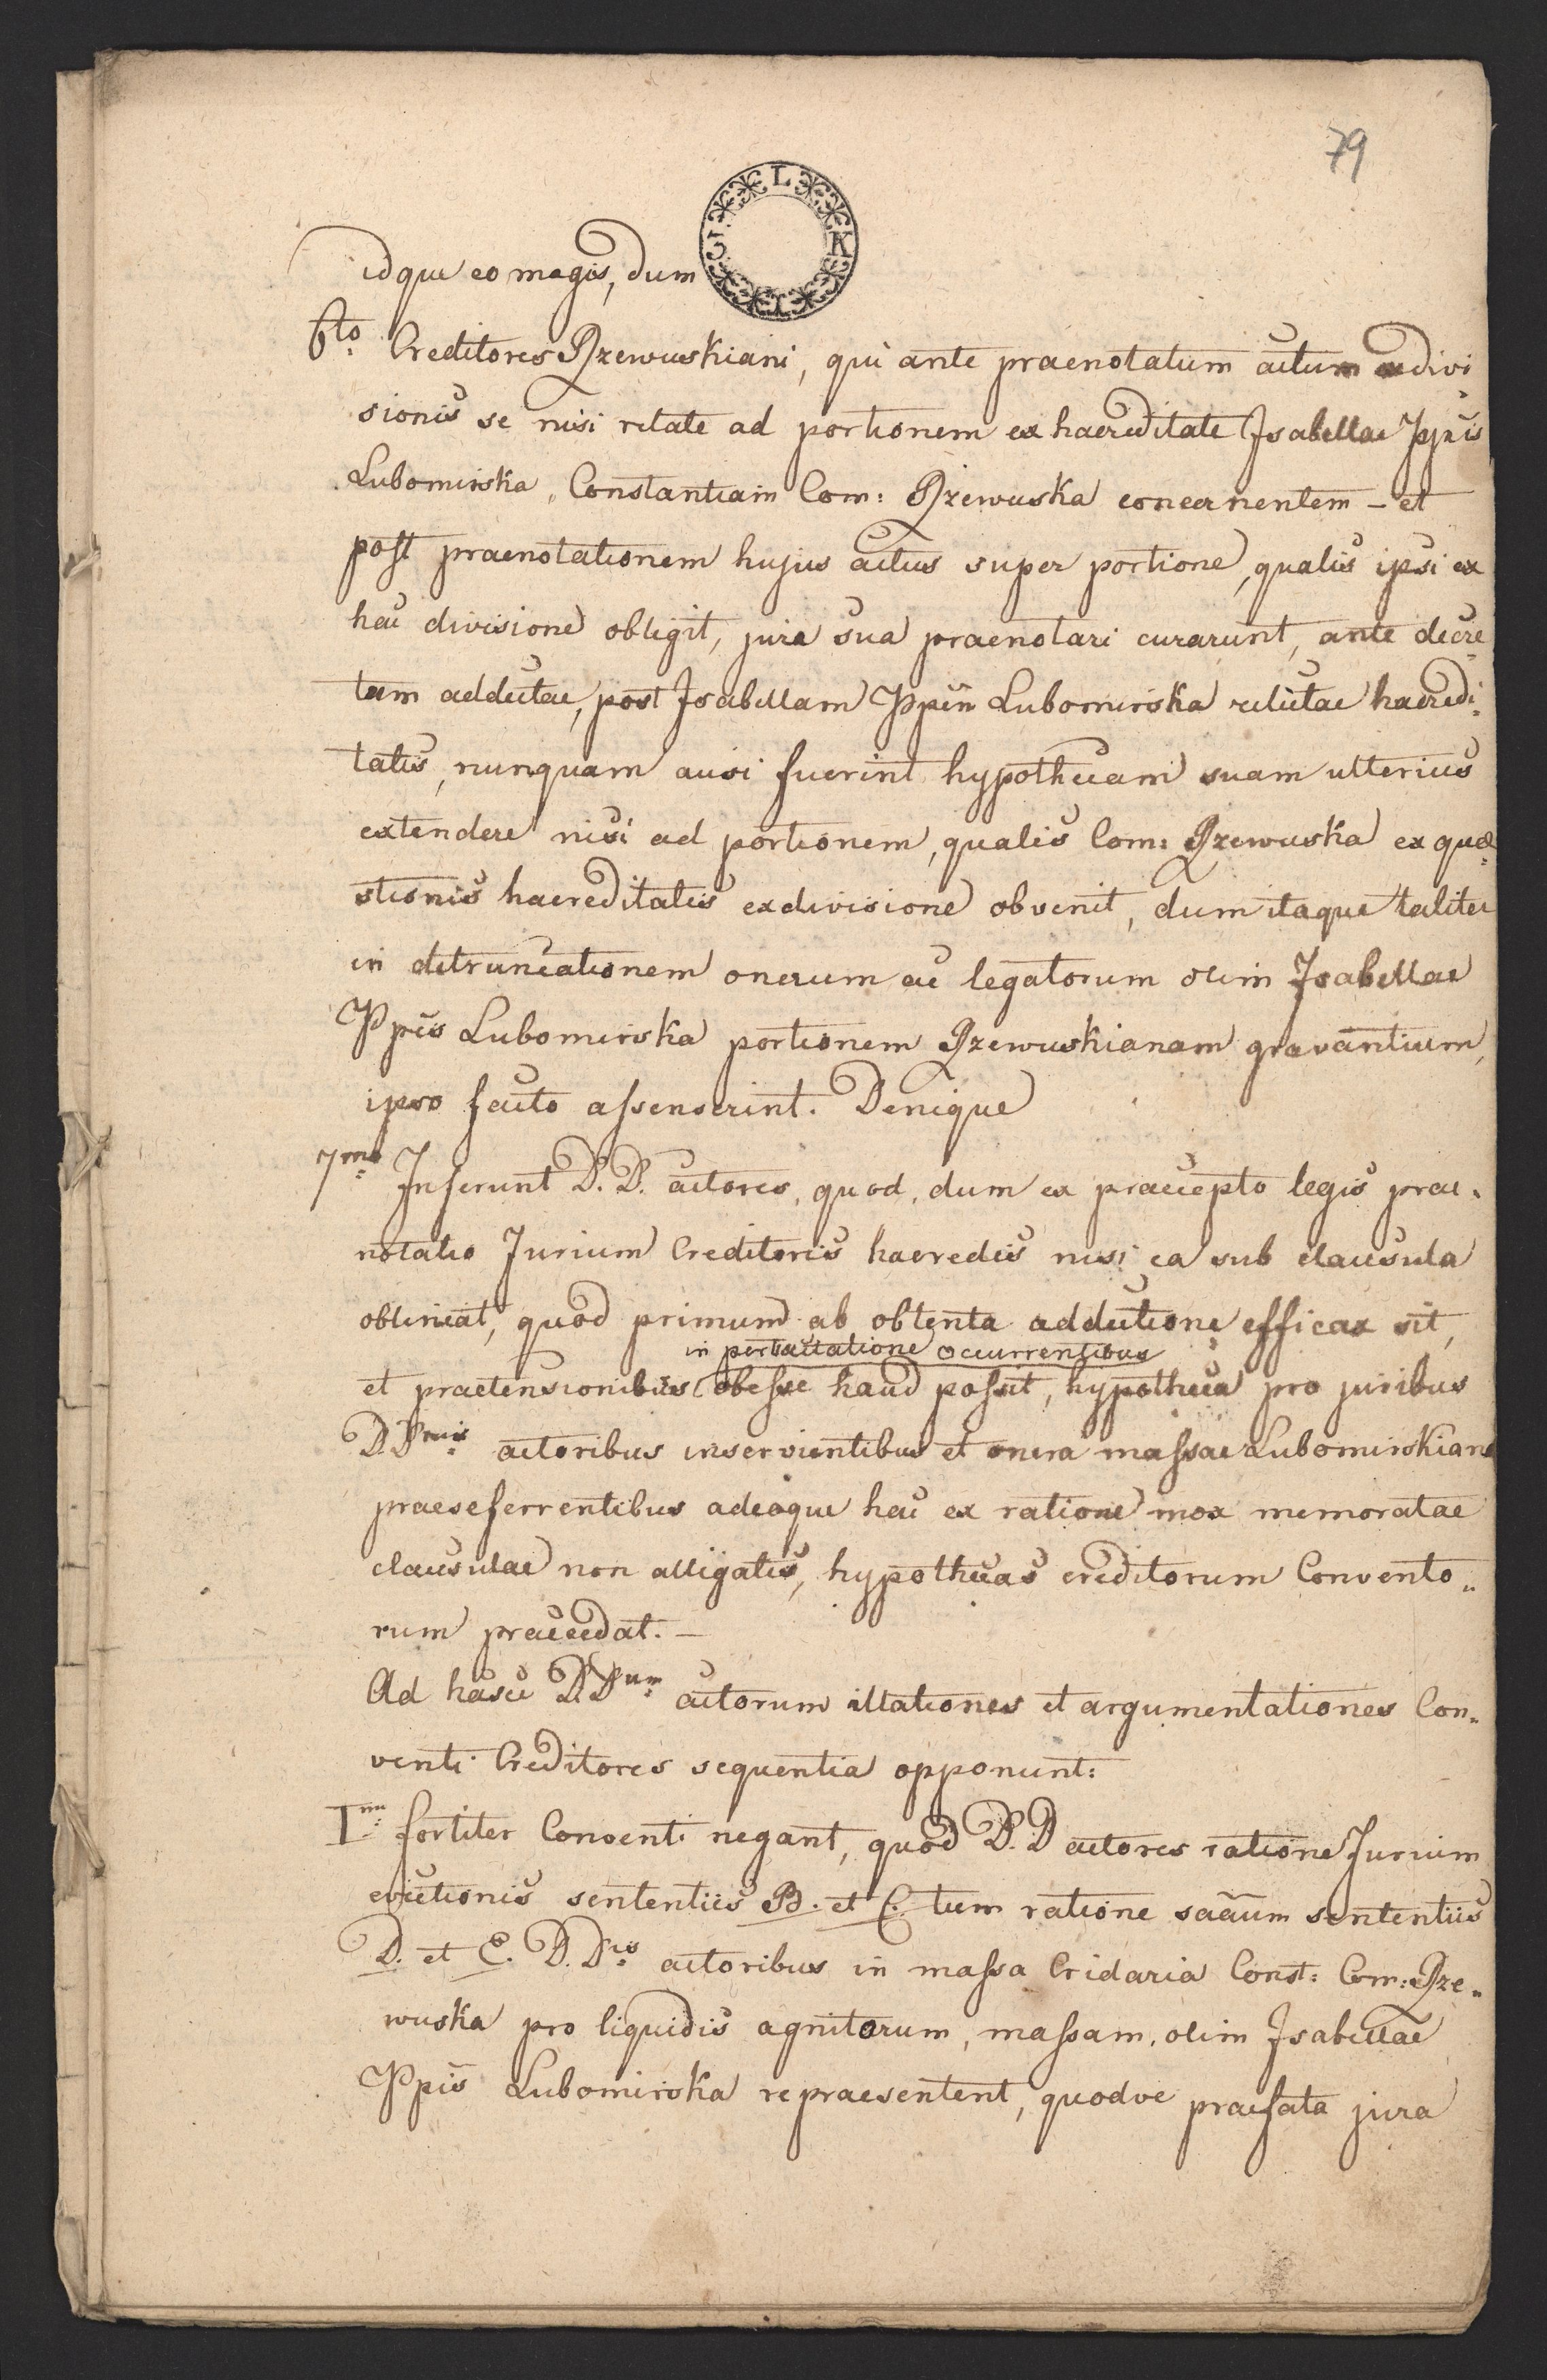 79
L
3 K
X
idque eo magis, dum
6to Creditores Rzewuskiani, qui ante praenotatum actum exdivi-
sionis se nisi relate ad portionem ex haereditate Isabellae Ppis
Lubomirska, Constantiam Com: Rzewuska concernentem - et
post praenotationem hujus actus super portione, qualis ipsi ex
hac divisione obtigit, jura sua praenotari curarunt, ante decre-
tam addictae, post Isabellam Ppem Lubomirska relictae haeredi-
tatis, nunquam ausi fuerint hypothecam suam ulterius
extendere nisi ad portionem, qualis Com: Rzewuska ex quae-
stionis haereditatis exdivisione obvenit, dum itaque taliter
in detruncationem onerum ac legatorum olim Isabellae
Ppis Lubomirska portionem Rzewuskianam gravantium,
ipso facto assenserint. Denique
7mo Inferunt D.D. actores, quod, dum ex praecepto legis prae-
notatio Jurium Creditoris haeredis nisi ea sub clausula
obtineat, quod primum ab obtenta addictione efficax sit,
in pertractatione occurrentibus
et praetensionibus obesse haud possit, hypotheca pro juribus
D.Dnis actoribus inservientibus et onera massae Lubomirskianae
praeseferrentibus adeoque hac ex ratione mox memoratae
clausulae non alligatis, hypothecas creditorum Convento-
rum praecedat. -
Ad hasce D.Dum actorum illationes et argumentationes Con-
venti Creditores sequentia opponunt:
Imo fortiter Conventi negant, quod D.D actores ratione Jurium
evictionis sententiis B. et C. tum ratione saāum sententiis
D. et E. D.Dis actoribus in massa Cridaria Const: Com: Rze-
wuska pro liquidis agnitorum, massam, olim Isabellae
Ppis Lubomirska repraesentent, quodve praefata jura